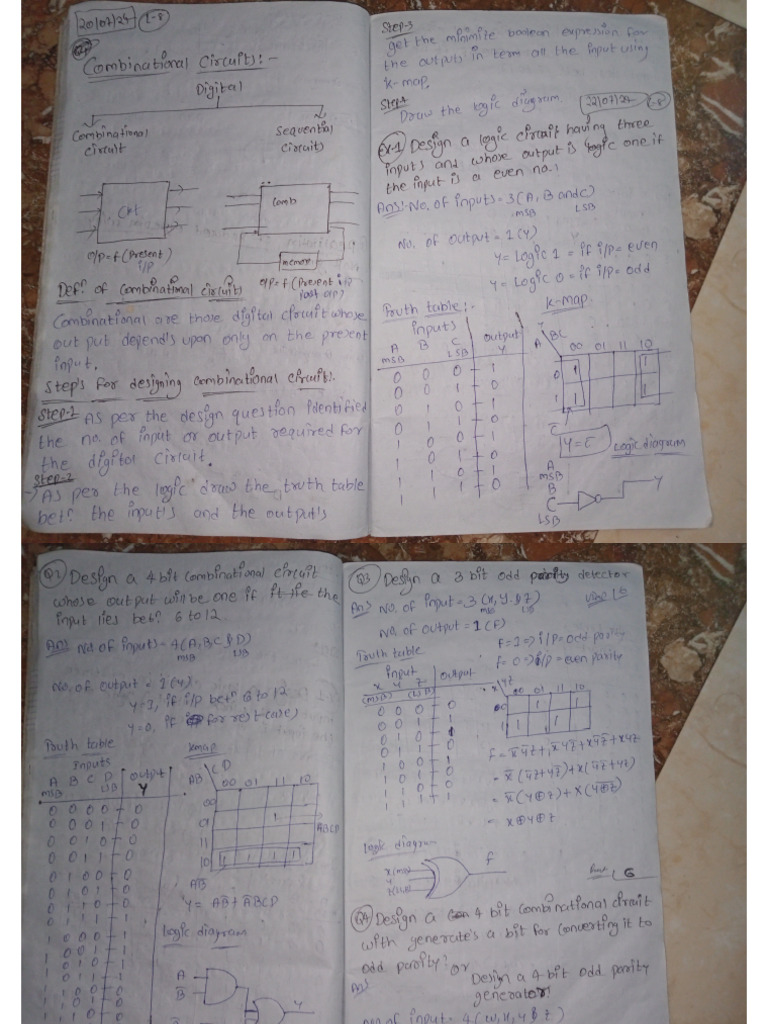 20/07/24 L-8
Combinational Circuits:-
Digital
Combinational Sequential
Circuit Circuit)
Ckt Comb
memory
O/P = f (Present O/P = f (Present i/p
i/p) past o/p)
Defn of Combinational Circuit)
Combinational are those digital circuit whose
out put depend's upon only on the present
input.
Step's for designing Combinational Circuit:-
Step-1 As per the design question identified
the no. of input or output required for
the digital Circuit.
Step-2
→ As per the logic draw the truth table
betn the input's and the output's
Step-3
get the minimize boolean expression for
the outputs in term all the input using
k-map.
Step-4
Draw the logic diagram. 22/07/24 L-8
Ex-1 Design a logic circuit having three
inputs and whose output is logic one if
the input is a even no.
Ans:- No. of inputs = 3 (A, B and C)
MSB LSB
No. of output = 1 (Y)
Y = Logic 1 = if i/p = even
Y = Logic 0 = if i/p = odd
Truth table:- K-map
inputs output
A B C Y
MSB LSB
0 0 0 1
0 0 1 0
0 1 0 1
0 1 1 0
1 0 0 1
1 0 1 0
1 1 0 1
1 1 1 0
A BC 00 01 11 10
0 1 1
1 1 1
C̅
Y = C̅
Logic diagram
A
MSB
B
C Y
LSB
Q2 Design a 4 bit combinational circuit
whose out put will be one if the
input lies betn 6 to 12
Ans No. of inputs = 4 (A, B, C & D)
MSB LSB
No. of output = 1 (Y)
Y=1, if i/p betn 6 to 12
Y=0, if for rest case)
Truth table Kmap
Inputs Output
A B C D Y
MSB LSB
0 0 0 0 0
0 0 0 1 0
0 0 1 0 0
0 0 1 1 0
AB CD 00 01 11 10
00
01 1
11
10 1 1 1 1
A̅B̅CD
AB̅
Y = AB̅ + A̅BCD
Logic diagram
A
B̅
Y
Q3 Design a 3 bit odd parity detector
Ans No. of input = 3 (x, y & z)
MSB LSB
No. of output = 1 (F)
Truth table F = 1 => i/p = odd parity
F = 0 => i/p = even parity
input output
x y z
(MSB) (LSB)
0 0 0 0
0 0 1 1
x yz 00 01 11 10
F = x̅y̅z + x̅yz̅ + xy̅z̅ + xyz
= x̅(y̅z + yz̅) + x(y̅z̅ + yz)
= x̅(y⊕z) + x(y⊕z)
= x⊕y⊕z
logic diagram
x (MSB)
y
z (LSB)
F
Q4 Design a 4 bit combinational circuit
with generate's a bit for converting it to
odd parity? or
Design a 4 bit odd parity
generator!
Ans
No. of input = 4 (w, x, y & z)